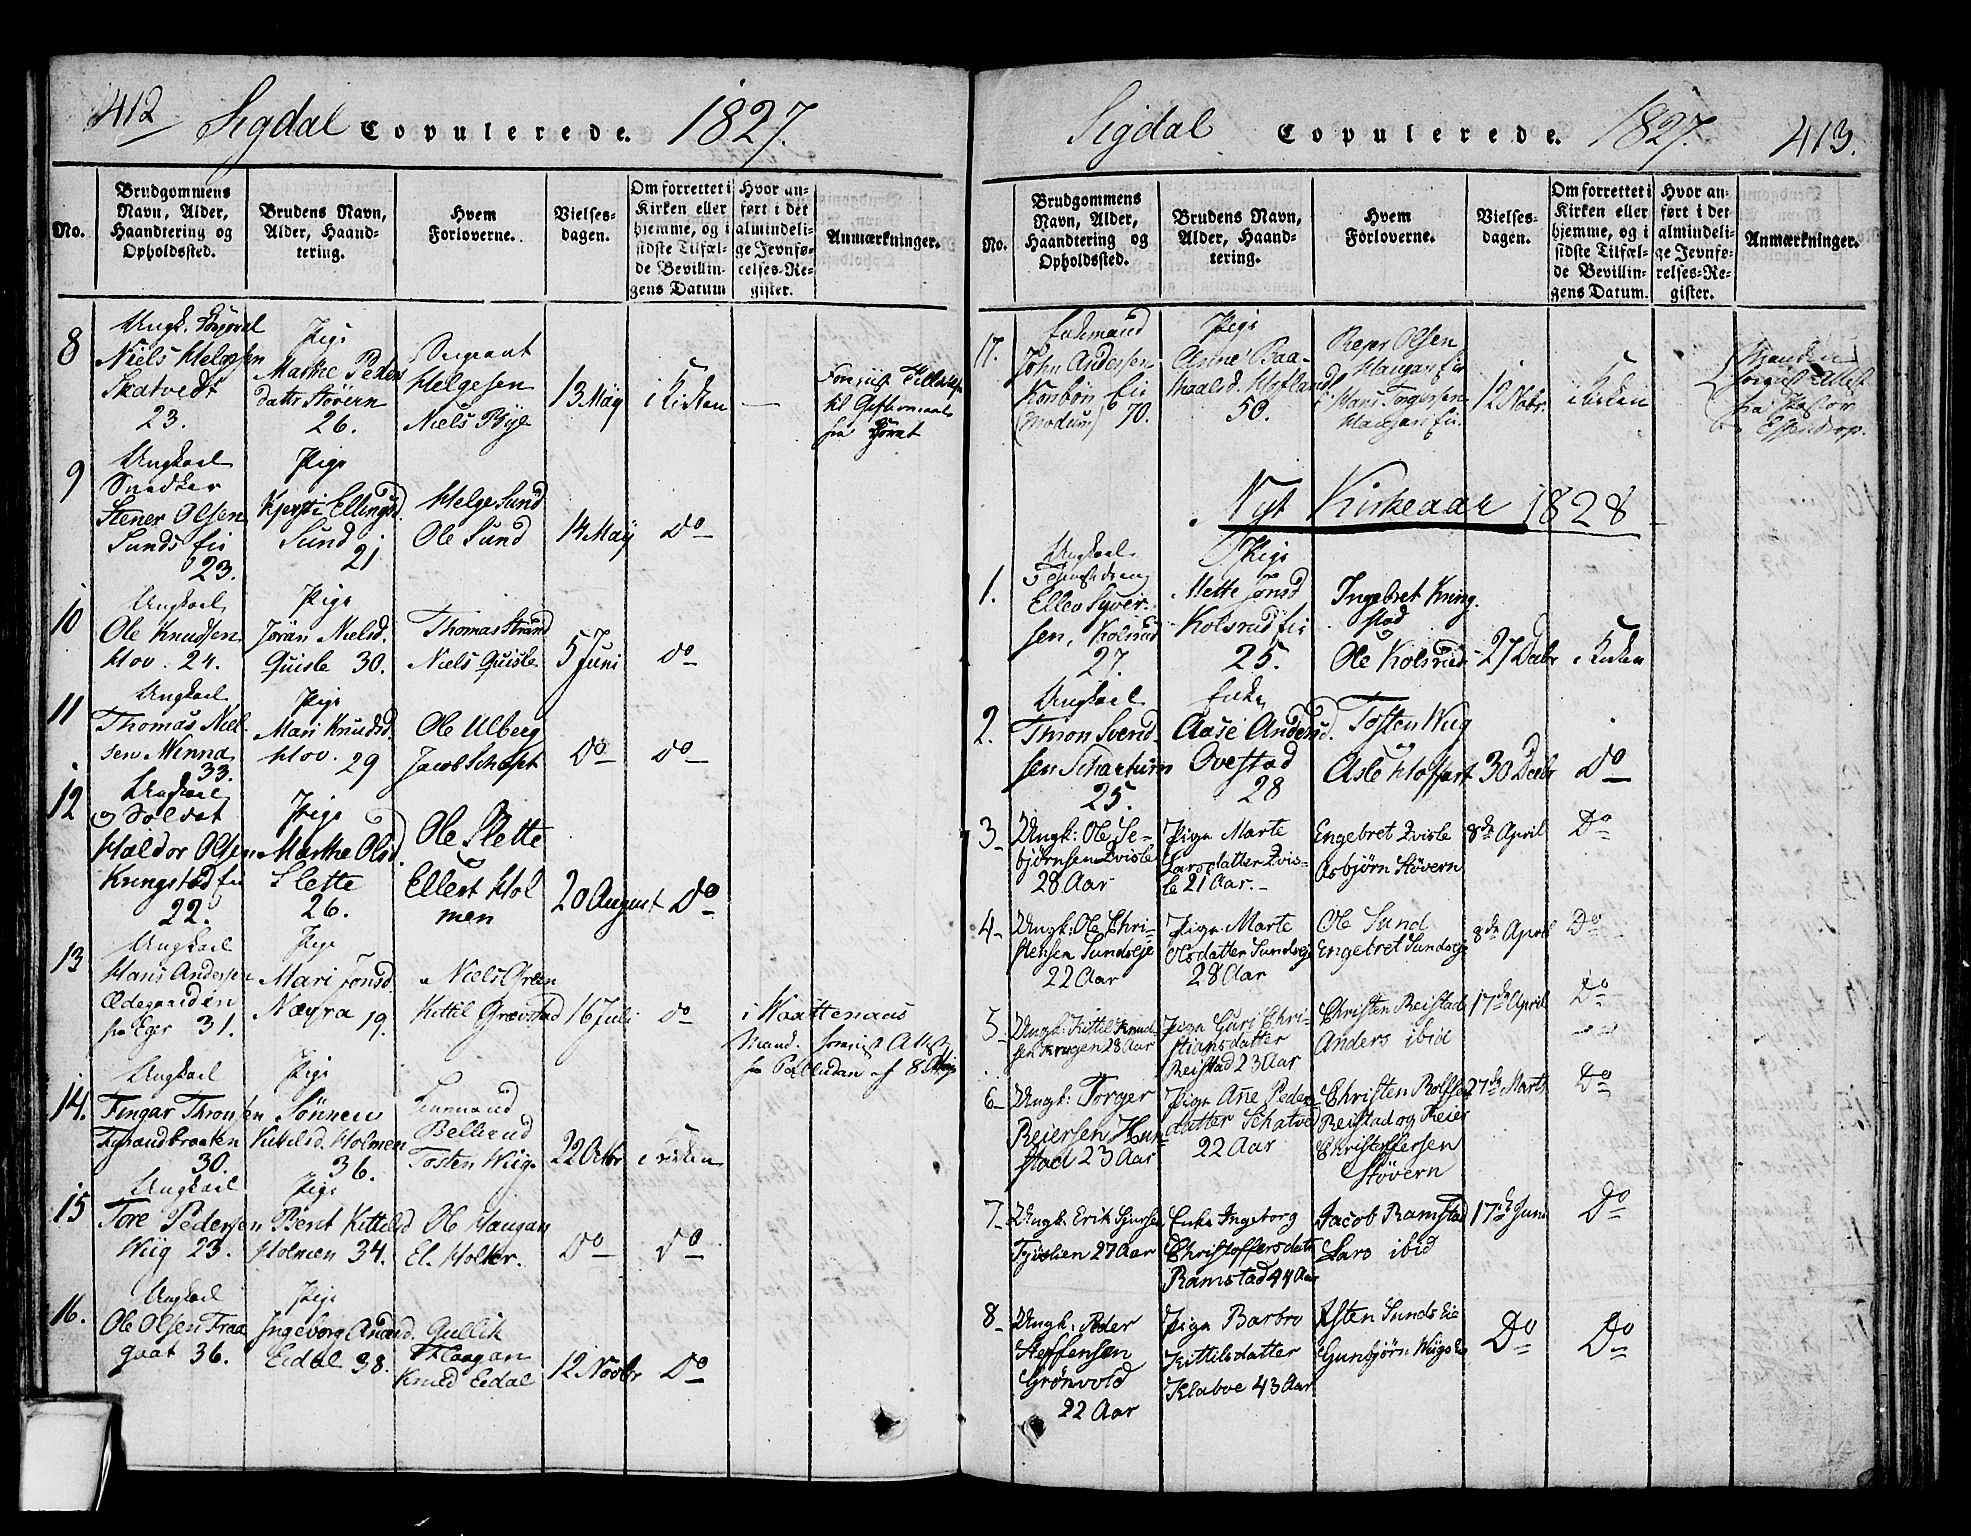 412 Sigdal Copulerede. 1827.
No.
Brudgommens Navn, Alder, Haandtering og Opholdssted.
Brudens Navn, Alder, Haandtering.
Hvem Forloverne.
Vielsesdagen.
Om forrettet i Kirken eller hjemme, og i sidste Tilfælde Bevillingens Datum
Hvor anført i det almindelige Jevnførelses-Register.
Anmærkninger.
8
Ungk.
Niels Helgesen
Skatvedt
23.
Pige
Marthe Peders
datter Støvern
26.
Helgesen
Niels Bye
13 May
i Kirken
—
til Giftermaal
fra
9
Ungkarl
Snedker
Stener Olsen
Sunds Eie
23.
Pige
Kjersti Ellingsd.
Sund
21
Helge Sund
Ole Sund
14 May
Do
10
Ungkarl
Ole Knudsen
Hov. 24.
Pige
Jøran Nielsd.
Quisle 30.
Thomas Strand
Niels Quisle
5 Juni
Do
11
Ungkarl
Thomas Niel-
sen Winna
33.
Pige
Mari Knudsd.
Hov. 29
Ole Ulberg
Jacob Schøst
Do
Do
12
Ungkarl
og Soldat
Haldor Olsen
Kringstad Eie
22.
Pige
Marthe Olsd.
Slette
26.
Ole Slette
Ellert Hol
men
20 August
Do
13
Ungkarl
Hans Andersen
Ødegaarden
fra Eger 31.
Pige
Mari Jonsd.
Næyra 19.
Niels Green
Kittil Grævstad
16 Juli
Do
i Waattenaas
Mand. forevist Attest
fra Palludan af 8
14.
Ungkarl
Fingar Thronsen
Tyrandbraaten
30.
Pige
Sønnev
Kittilsd. Holmen
36.
Bellerud
Tosten Wiig.
22 Octbr
i Kirken
15
Ungkarl
Tore Pedersen
Wiig 23.
Pige
Berit Kittilsd
Holmen 34.
Ole Haugan
El. Holker.
Do
Do
16.
Ungkarl
Ole Olsen Fraa
gaat 36.
Pige
Ingeborg Amund.
Eidal 38.
Gullik
Flaagan
Knud Eidal
12 Novbr
Do
Sigdal Copulerede. 1827. 413.
No.
Brudgommens Navn, Alder, Haandtering og Opholdssted.
Brudens Navn, Alder, Haandtering.
Hvem Forloverne.
Vielsesdagen.
Om forrettet i Kirken eller hjemme, og i sidste Tilfælde Bevillingens Datum.
Hvor anført i det almindelige Jevnførelses-Register.
Anmærkninger.
17.
Enkemand
John Andersen
Korsbøn Eie
(Modum) 70.
Pige
Anne Baa-
Hofland
50.
Reyer Olsen
Haugan Eie
Hans Torgersen
Haugan Eie.
12 Nobr.
i Kirken
Manden
forevist Attest
fra Pastor
Essendrop.
Nyt Kirkeaar 1828
1.
Ungkarl
Ellev Syver-
sen, Kolsrud
27.
Pige
Mette Jonsd
Kolsrud Eie
25.
Ingebret Kring.
stad
Ole Kolsrud
27 Decbr
i Kirken
2.
Ungkarl
Thron Svend
sen Schartum
25.
Enke
Aase Andersd.
Ovestad
28
Tosten Wiig
og
Asle Hoffart
30 Decbr
Do
3
Ungk: Ole Se-
bjørnsen Qvisle
28 Aar
Pige Marte
Larsdatter Qvis-
le 21 Aar.
Engebret Qvisle
Asbjørn Støvern
8de April
Do
4
Ungk: Ole Chri-
stensen Sundseje
22 Aar
Pige Marte
Olsdatter Sundseje
28 Aar
Ole Sund
Engebret Sundseje
8de April
Do
5
Ungk: Kittil Knud
sen Krogen 28 Aar
Pige Guri Chri-
stiansdatter
Reistad 23 Aar
Christen Reistad
Anders ibid
17de April
Do
6
Ungk: Torger
Reiersen Hun-
stad 23 Aar
Pige Ane Peders
datter Schatved
22 Aar
Christen Rolfsen
Reistad og Reier
Christoffersen
Støvern
27de Marts
Do
7
Ungk: Erik Sjursen
Tjuslien 27 Aar
Enke Ingeborg
Christoffersdatter
Ramstad 44 Aar
Jacob Ramstad
Lars ibid
17de Juni
Do
8
Ungk: Peder
Steffensen
Grønvold
22 Aar
Pige Barbro
Kittilsdatter
Klabve 43 Aar
Østen Sunds Eie
Gunbjørn Wiigs Eie
Do
Do